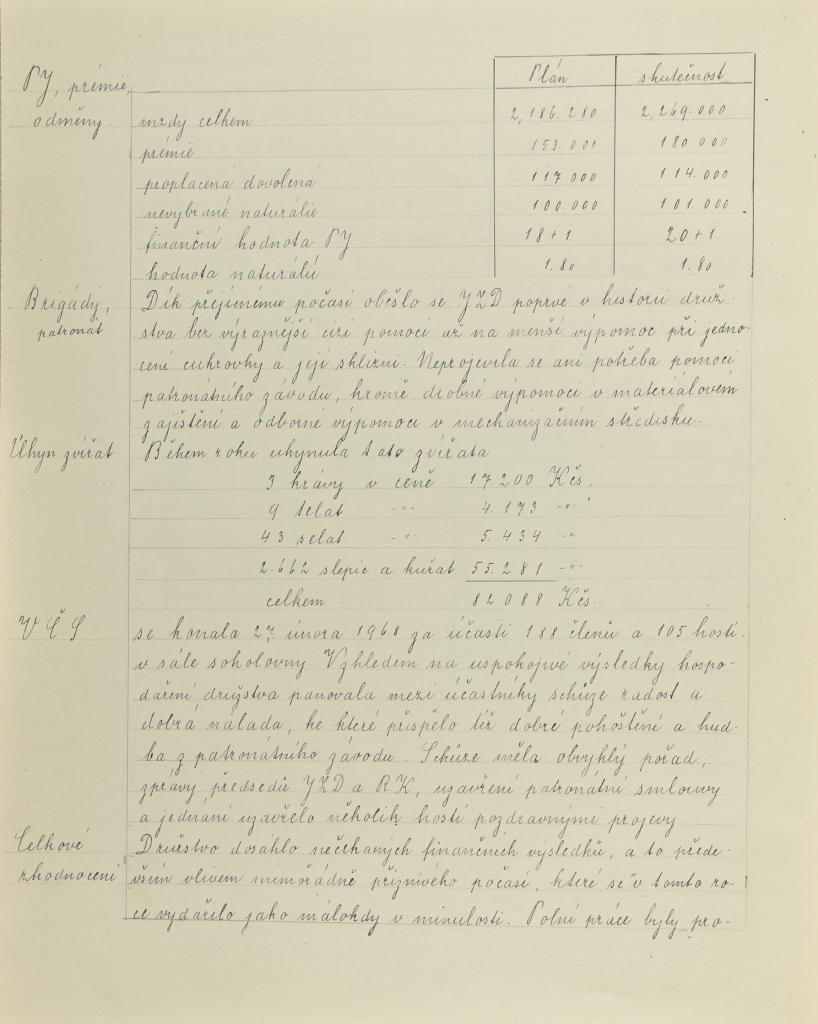 PJ, prémie, Plán skutečnost
odměny. mzdy celkem 2,186.280 2,269.000
prémie 153.000 180.000
proplacená dovolena 117.000 114.000
nevybrané naturálie 100.000 101.000
finanční hodnota PJ 18+1 20+1
hodnota naturálií 1.80 1.80
Brigády, Dík příjemému počasí obešlo se JZD poprvé v historii druž-
patronát stva bez výraznější cizí pomoci až na menší výpomoc při jedno-
cení cukrovky a její sklizni. Neprojevila se ani potřeba pomoci
patronátního závodu, kromě drobné výpomoci v materiálovém
zajištění a odborné výpomoci v mechanizačním středisku.
Úhyn zvířat Během roku uhynula tato zvířata
3 krávy v ceně 17.200 Kčs.
9 telat -"- 4.173 -"-
43 selat -"- 5.434 -"-
2.662 slepic a kuřat 55.281 -"-
celkem 82088 Kčs.
VČS se konala 27. února 1968 za účasti 188 členů a 105 hostí.
v sále sokolovny. Vzhledem na uspokojivé výsledky hospo-
daření družstva panovala mezi účastníky schůze radost a
dobrá nálada, ke které přispělo též dobré pohoštění a hud-
ba z patronátního závodu. Schůze měla obvyklý pořad,
zprávy předsedů JZD a RK, uzavření patronátní smlouvy
a jednání uzavřelo několik hostí pozdravnými projevy.
Celkové Družstvo dosáhlo nečekaných finančních výsledků, a to přede-
zhodnocení vším vlivem mimořádně příznivého počasí, které se v tomto ro-
ce vydařilo jako málokdy v minulosti. Polní práce byly pro-